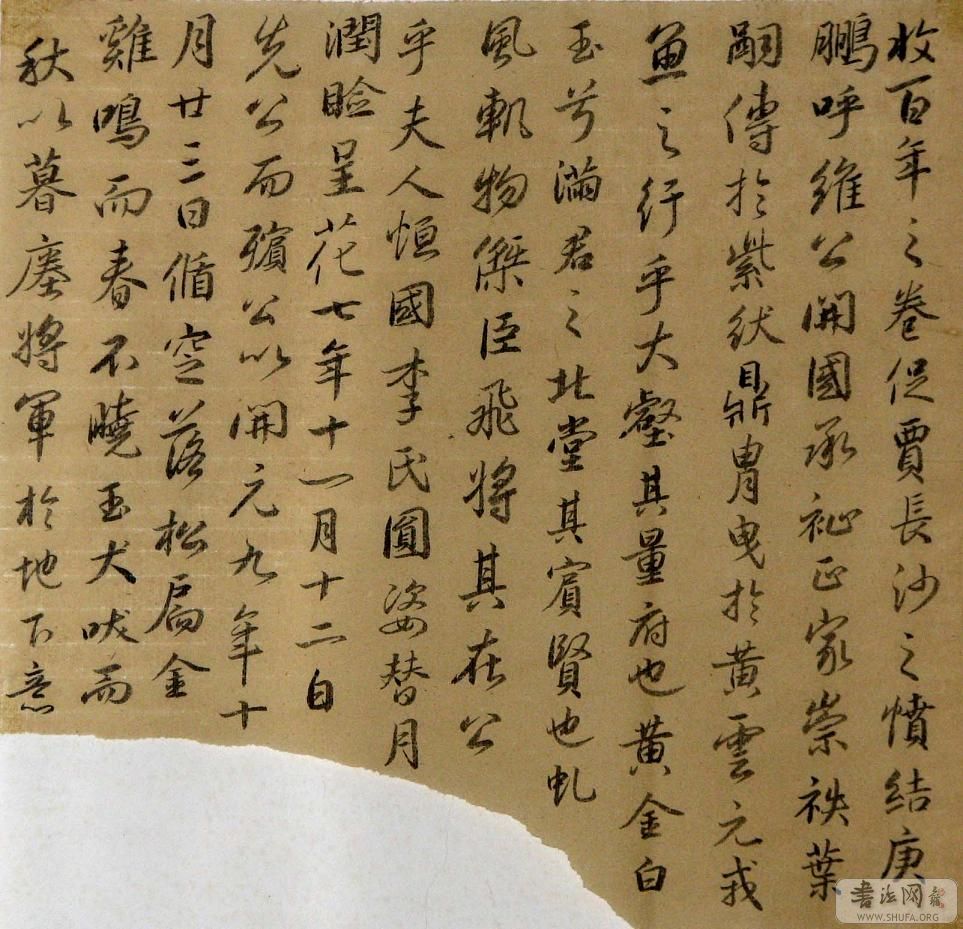 收百年之卷促賈長沙之憤結庚
鵬呼維公開國承祉正家崇袟葉
嗣傳於紫紱鼎胄曳於黃雲元戎
魚之行乎大壑其量府也黃金白
玉兮滿君之北堂其賓賢也虬
風軌物傑臣飛將其在公
乎夫人恒國李氏圓姿替月
潤臉呈花七年十一月十二日
先公而殯公以開元九年十
月廿三日循窆落松扃金
雞鳴而春不曉玉犬吠而
秋以暮塵將軍於地下意
書法网
WWW.SHUFA.ORG